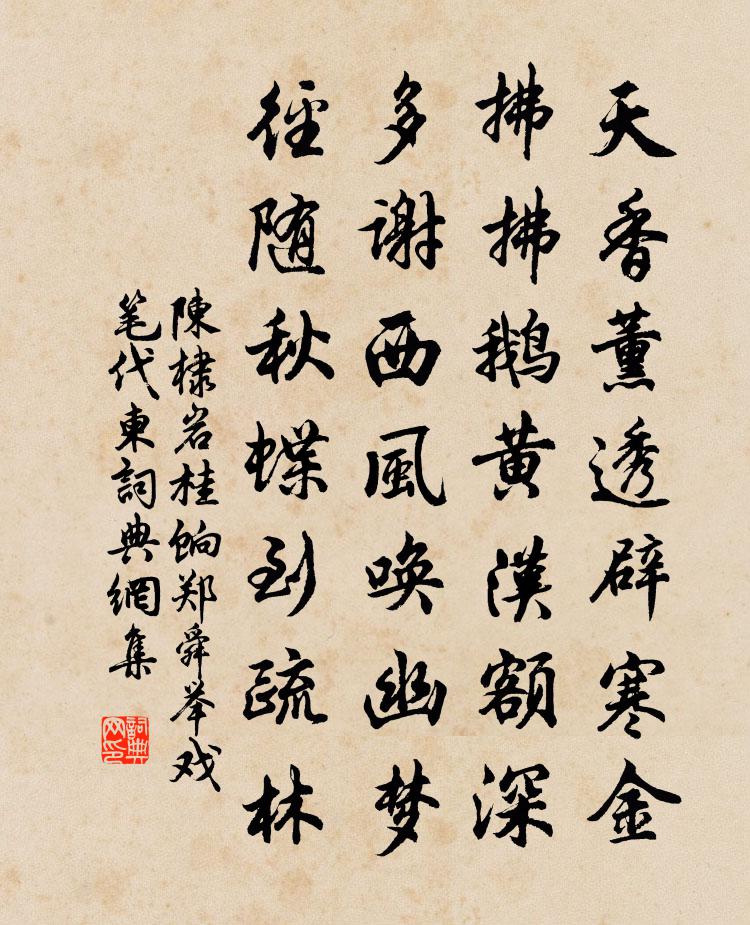 天香薰透辟寒金
拂拂鹅黄漠额深
多谢西風唤幽梦
径随秋蝶到疏林
陳棣岩桂餉郑舜举戏
笔代東詞典網集
詞典网印